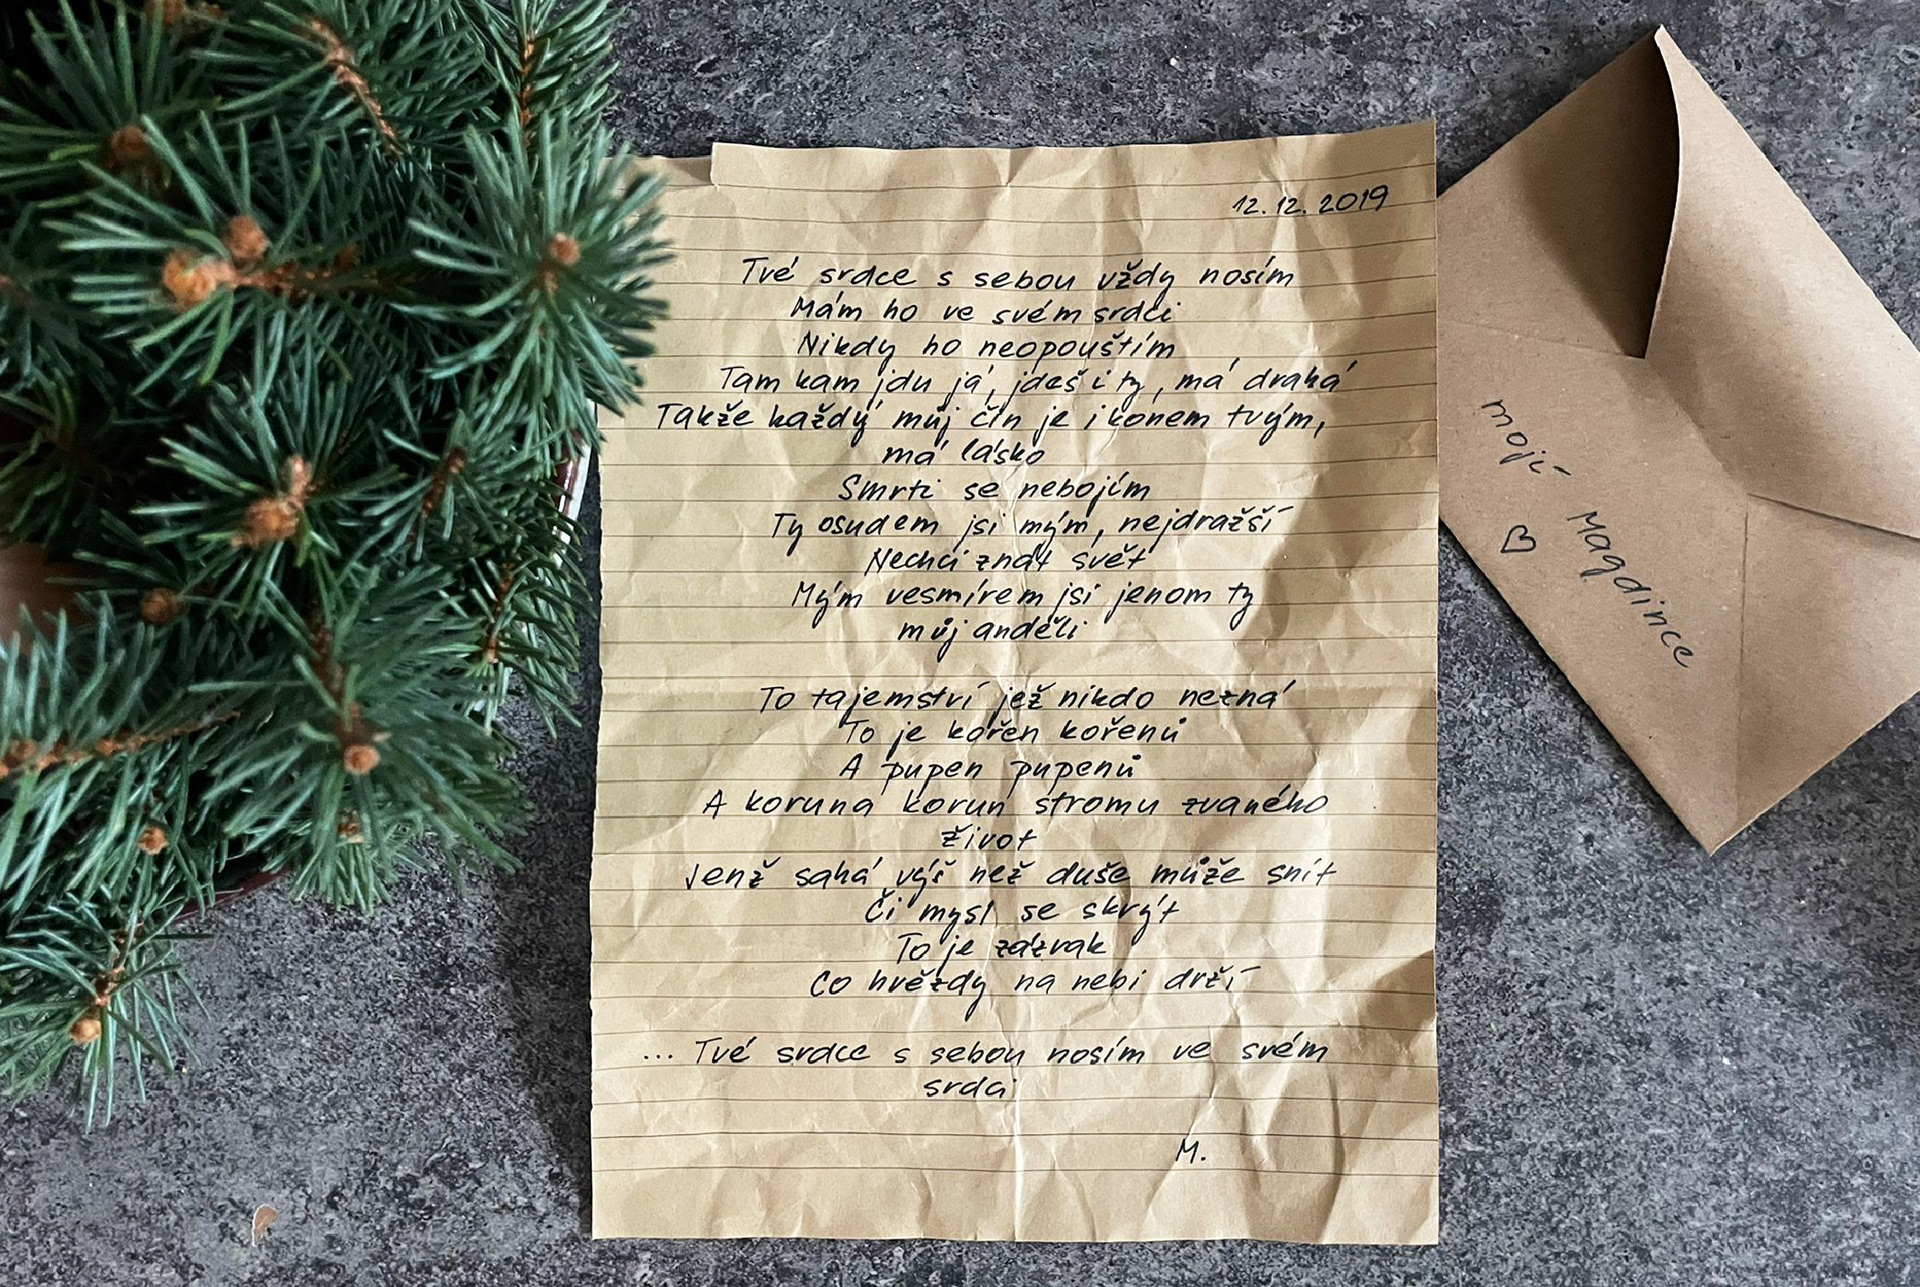 12.12.2019
Tvé srdce s sebou vždy nosím
Mám ho ve svém srdci
Nikdy ho neopouštím
Tam kam jdu já, jdeš i ty, má drahá
Takže každý můj čin je i konem tvým,
má lásko
Smrti se nebojím
Ty osudem jsi mým, nejdražší
Nechci znát svět
Mým vesmírem jsi jenom ty
můj anděli
To tajemství jež nikdo nezná
To je kořen kořenů
A pupen pupenů
A koruna korun stromu zvaného
život
Jenž sahá výš než duše může snít
Či mysl se skrýt
To je zázrak
Co hvězdy na nebi drží
... Tvé srdce s sebou nosím ve svém
srdci
M.
mojí
Magdince
♡